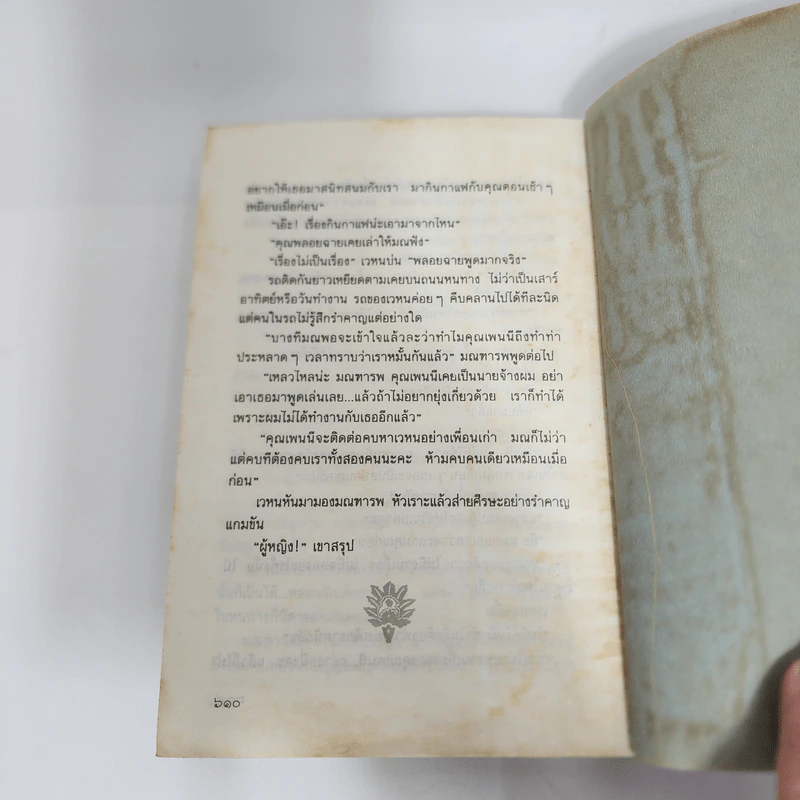 อยากให้เธอมาสนิทสนมกับเรา มากินกาแฟกับคุณตอนเช้าๆ
เหมือนเมื่อก่อน"
"เอ๊ะ! เรื่องกินกาแฟน่ะเอามาจากไหน"
"คุณพลอยฉายเคยเล่าให้มณฟัง"
"เรื่องไม่เป็นเรื่อง" เวหนบ่น "พลอยฉายพูดมากจริง"
รถติดกันยาวเหยียดตามเคยบนถนนหนทาง ไม่ว่าเป็นเสาร์
อาทิตย์หรือวันทำงาน รถของเวหนค่อยๆ คืบคลานไปได้ทีละนิด
แต่คนในรถไม่รู้สึกรำคาญแต่อย่างใด
"บางทีมณพอจะเข้าใจแล้วละว่าทำไมคุณเพนนีถึงทำท่า
ประหลาดๆ เวลาทราบว่าเราหมั้นกันแล้ว" มณฑารพพูดต่อไป
"เหลวไหลน่ะ มณฑารพ คุณเพนนีเคยเป็นนายจ้างผม อย่า
เอาเธอมาพูดเล่นเลย...แล้วถ้าไม่อยากยุ่งเกี่ยวด้วย เราก็ทำได้
เพราะผมไม่ได้ทำงานกับเธออีกแล้ว"
"คุณเพนนีจะติดต่อคบหาเวหนอย่างเพื่อนเก่า มณก็ไม่ว่า
แต่คบทีต้องคบเราทั้งสองคนนะคะ ห้ามคบคนเดียวเหมือนเมื่อ
ก่อน"
เวหนหันมามองมณฑารพ หัวเราะแล้วส่ายศีรษะอย่างรำคาญ
แกมขัน
"ผู้หญิง!" เขาสรุป
๖๑๐